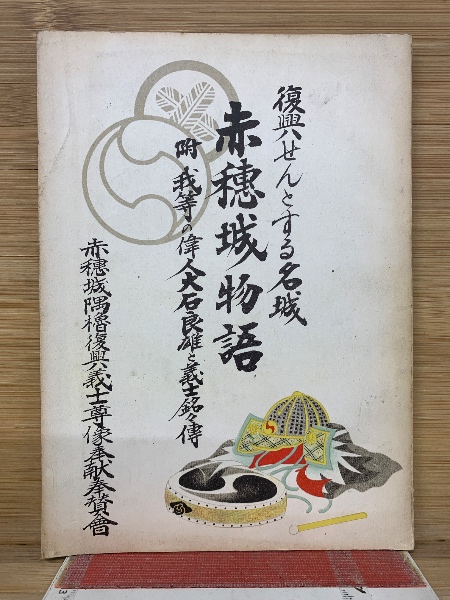 復興せんとする名城
赤穗城物語
附 我等の偉人大石良雄と義士銘々傳
赤穗城隅櫓復興義士尊像奉献奉賛會